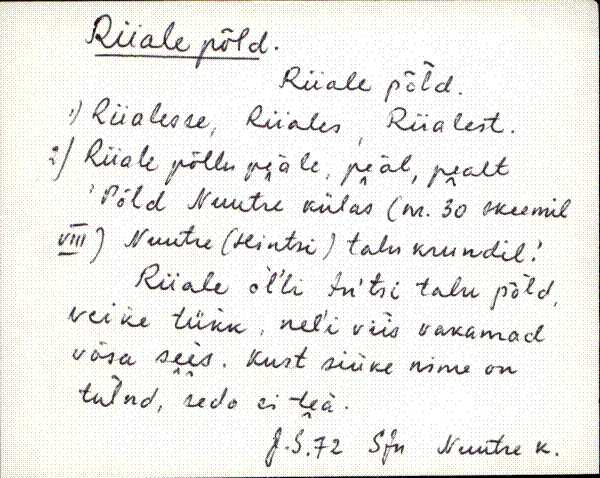 Riiale põld.
Riiale põld.
1) Riialesse, Riiales, Riialest.
2) Riiale põllu peale, peal, pealt
'Põld Nuutre külas (nr. 30 skeemil
VIII) Nuutre (Hintsi) talu krundil.'
Riiale ol'li In'tsi talu põld,
veike tükk, nel'i viis vakamad
võsa sees. Kust siuke nime on
tulnd, sedo ei tea.
J.S. 72 Sjn Nuutre k.